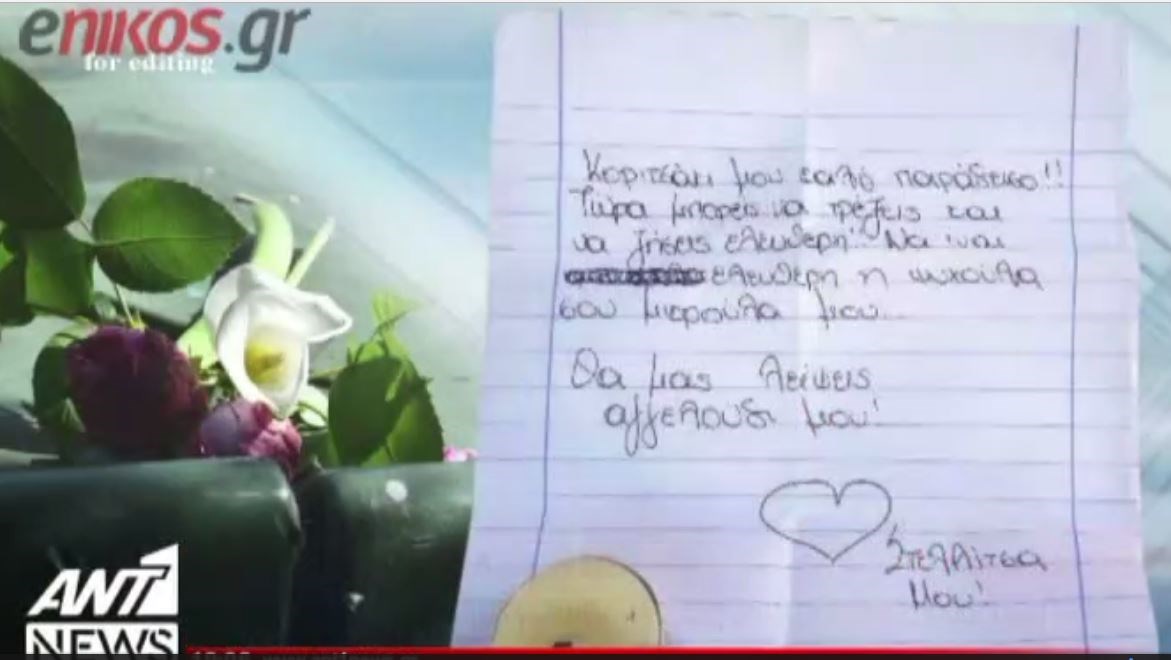 enikos.gr
for editing
Κοριτσάκι μου καλό παράδεισο!!
Τώρα μπορείς να τρέξεις και
να ζήσεις ελεύθερη! Να ναι
ελευθερη η ψυχούλα
σου μικρούλα μου...
Θα μας λείψεις
αγγελουδι μου!
Στελλίτσα
Μου!
ANT1
NEWS